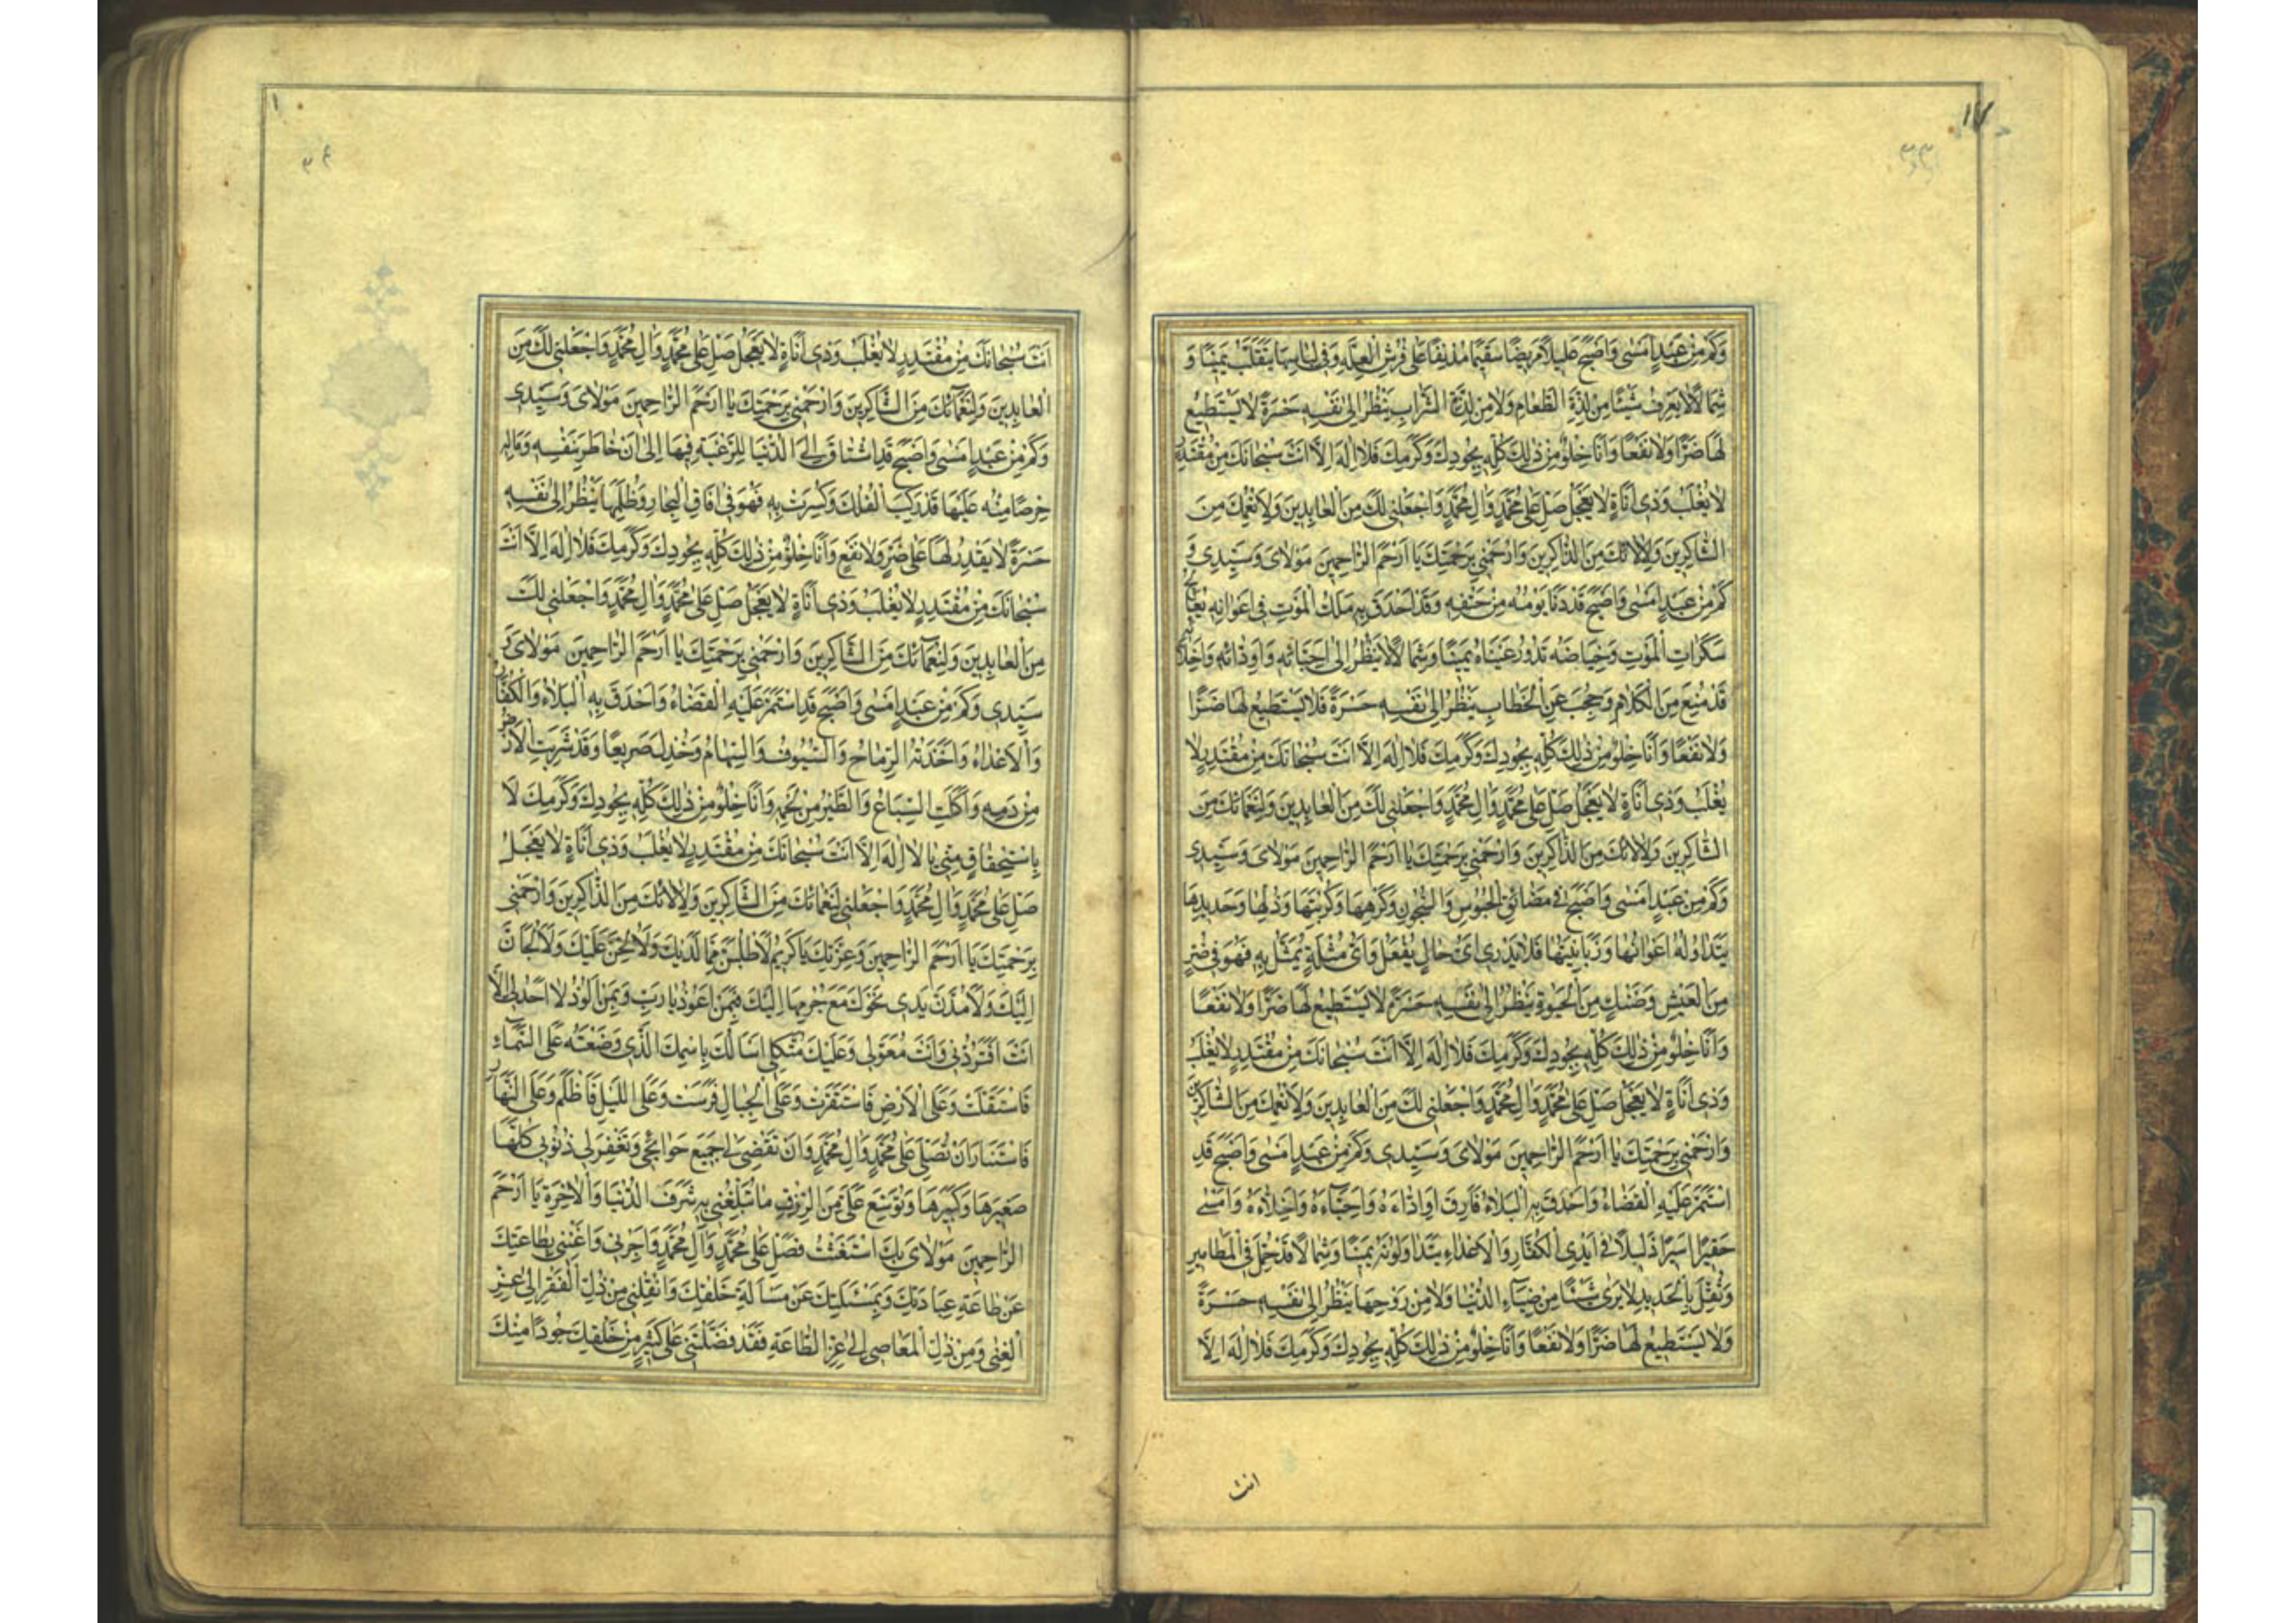 ١٧
٣٣
وَكَمْ مِنْ عَبْدٍ اَمْسٰى وَاَصْبَحَ عَلِيلًا مَرِيضًا سَقِيمًا مُدْنِفًا عَلٰى فُرُشِ الْعِلَّةِ وَفِى لِبَاسِهَا يَتَقَلَّبُ يَمِينًا وَ
شِمَالًا لَا يَعْرِفُ شَيْئًا مِنْ لَذَّةِ الطَّعَامِ وَلَا مِنْ لَذَّةِ الشَّرَابِ يَنْظُرُ اِلٰى نَفْسِهِ حَسْرَةً لَا يَسْتَطِيعُ
لَهَا ضَرًّا وَلَا نَفْعًا وَاَنَا خِلْوٌ مِنْ ذٰلِكَ كُلِّهِ بِجُودِكَ وَكَرَمِكَ فَلَا اِلٰهَ اِلَّا اَنْتَ سُبْحَانَكَ مِنْ مُقْتَدِرٍ
لَا يُغْلَبُ وَذِى اَنَاةٍ لَا يَعْجَلُ صَلِّ عَلٰى مُحَمَّدٍ وَاٰلِ مُحَمَّدٍ وَاجْعَلْنِى لَكَ مِنَ الْعَابِدِينَ وَلِاَنْعُمِكَ مِنَ
الشَّاكِرِينَ وَلِاٰلَائِكَ مِنَ الذَّاكِرِينَ وَارْحَمْنِى بِرَحْمَتِكَ يَا اَرْحَمَ الرَّاحِمِينَ مَوْلَاىَ وَسَيِّدِى وَ
كَمْ مِنْ عَبْدٍ اَمْسٰى وَاَصْبَحَ قَدْ دَنَا يَوْمُهُ مِنْ حَتْفِهِ وَقَدْ اَحْدَقَ بِهِ مَلَكُ الْمَوْتِ فِى اَعْوَانِهِ يُعَالِجُ
سَكَرَاتِ الْمَوْتِ وَحِيَاضَهُ تَدُورُ عَيْنَاهُ يَمِينًا وَشِمَالًا يَنْظُرُ اِلٰى اَحِبَّائِهِ وَاَوِدَّائِهِ وَاَخِلَّائِهِ
قَدْ مُنِعَ مِنَ الْكَلَامِ وَحُجِبَ عَنِ الْخِطَابِ يَنْظُرُ اِلٰى نَفْسِهِ حَسْرَةً فَلَا يَسْتَطِيعُ لَهَا ضَرًّا
وَلَا نَفْعًا وَاَنَا خِلْوٌ مِنْ ذٰلِكَ كُلِّهِ بِجُودِكَ وَكَرَمِكَ فَلَا اِلٰهَ اِلَّا اَنْتَ سُبْحَانَكَ مِنْ مُقْتَدِرٍ لَا
يُغْلَبُ وَذِى اَنَاةٍ لَا يَعْجَلُ صَلِّ عَلٰى مُحَمَّدٍ وَاٰلِ مُحَمَّدٍ وَاجْعَلْنِى لَكَ مِنَ الْعَابِدِينَ وَلِنَعْمَائِكَ مِنَ
الشَّاكِرِينَ وَلِاٰلَائِكَ مِنَ الذَّاكِرِينَ وَارْحَمْنِى بِرَحْمَتِكَ يَا اَرْحَمَ الرَّاحِمِينَ مَوْلَاىَ وَسَيِّدِى
وَكَمْ مِنْ عَبْدٍ اَمْسٰى وَاَصْبَحَ فِى مَضَائِقِ الْحُبُوسِ وَالسُّجُونِ وَكَرْهِهَا وَكُرْبَتِهَا وَذُلِّهَا وَحَدِيدِهَا
يَتَدَاوَلُهُ اَعْوَانُهَا وَزَبَانِيَتُهَا فَلَا يَدْرِى اَىُّ حَالٍ يُفْعَلُ وَاَىُّ مُثْلَةٍ يُمَثَّلُ بِهِ فَهُوَ فِى ضُرٍّ
مِنَ الْعَيْشِ وَضَنْكٍ مِنَ الْحَيٰوةِ يَنْظُرُ اِلٰى نَفْسِهِ حَسْرَةً لَا يَسْتَطِيعُ لَهَا ضَرًّا وَلَا نَفْعًا
وَاَنَا خِلْوٌ مِنْ ذٰلِكَ كُلِّهِ بِجُودِكَ وَكَرَمِكَ فَلَا اِلٰهَ اِلَّا اَنْتَ سُبْحَانَكَ مِنْ مُقْتَدِرٍ لَا يُغْلَبُ
وَذِى اَنَاةٍ لَا يَعْجَلُ صَلِّ عَلٰى مُحَمَّدٍ وَاٰلِ مُحَمَّدٍ وَاجْعَلْنِى لَكَ مِنَ الْعَابِدِينَ وَلِاَنْعُمِكَ مِنَ الشَّاكِرِينَ
وَارْحَمْنِى بِرَحْمَتِكَ يَا اَرْحَمَ الرَّاحِمِينَ مَوْلَاىَ وَسَيِّدِى وَكَمْ مِنْ عَبْدٍ اَمْسٰى وَاَصْبَحَ قَدِ
اسْتَمَرَّ عَلَيْهِ الْقَضَاءُ وَاَحْدَقَ بِهِ الْبَلَاءُ فَارَقَ اَوِدَّاءَهُ وَاَحِبَّاءَهُ وَاَخِلَّاءَهُ وَاَمْسٰى
حَقِيرًا اَسِيرًا ذَلِيلًا فِى اَيْدِى الْكُفَّارِ وَالْاَعْدَاءِ يَتَدَاوَلُونَهُ يَمِينًا وَشِمَالًا قَدْ حُمِلَ فِى الْمَطَامِيرِ
وَثُقِّلَ بِالْحَدِيدِ لَا يَرٰى شَيْئًا مِنْ ضِيَاءِ الدُّنْيَا وَلَا مِنْ رَوْحِهَا يَنْظُرُ اِلٰى نَفْسِهِ حَسْرَةً
وَلَا يَسْتَطِيعُ لَهَا ضَرًّا وَلَا نَفْعًا وَاَنَا خِلْوٌ مِنْ ذٰلِكَ كُلِّهِ بِجُودِكَ وَكَرَمِكَ فَلَا اِلٰهَ اِلَّا
انت
١
٣٤
اَنْتَ سُبْحَانَكَ مِنْ مُقْتَدِرٍ لَا يُغْلَبُ وَذِى اَنَاةٍ لَا يَعْجَلُ صَلِّ عَلٰى مُحَمَّدٍ وَاٰلِ مُحَمَّدٍ وَاجْعَلْنِى لَكَ مِنَ
الْعَابِدِينَ وَلِنَعْمَائِكَ مِنَ الشَّاكِرِينَ وَارْحَمْنِى بِرَحْمَتِكَ يَا اَرْحَمَ الرَّاحِمِينَ مَوْلَاىَ وَسَيِّدِى
وَكَمْ مِنْ عَبْدٍ اَمْسٰى وَاَصْبَحَ قَدِ اشْتَاقَ اِلَى الدُّنْيَا لِلرَّغْبَةِ فِيهَا اِلٰى اَنْ خَاطَرَ بِنَفْسِهِ وَمَالِهِ
حِرْصًا مِنْهُ عَلَيْهَا قَدْ رَكِبَ الْفُلْكَ وَكُسِرَتْ بِهِ فَهُوَ فِى اٰفَاقِ الْبِحَارِ وَظُلَمِهَا يَنْظُرُ اِلٰى نَفْسِهِ
حَسْرَةً لَا يَقْدِرُ لَهَا عَلٰى ضَرٍّ وَلَا نَفْعٍ وَاَنَا خِلْوٌ مِنْ ذٰلِكَ كُلِّهِ بِجُودِكَ وَكَرَمِكَ فَلَا اِلٰهَ اِلَّا اَنْتَ
سُبْحَانَكَ مِنْ مُقْتَدِرٍ لَا يُغْلَبُ وَذِى اَنَاةٍ لَا يَعْجَلُ صَلِّ عَلٰى مُحَمَّدٍ وَاٰلِ مُحَمَّدٍ وَاجْعَلْنِى لَكَ
مِنَ الْعَابِدِينَ وَلِنَعْمَائِكَ مِنَ الشَّاكِرِينَ وَارْحَمْنِى بِرَحْمَتِكَ يَا اَرْحَمَ الرَّاحِمِينَ مَوْلَاىَ وَ
سَيِّدِى وَكَمْ مِنْ عَبْدٍ اَمْسٰى وَاَصْبَحَ قَدِ اسْتَمَرَّ عَلَيْهِ الْقَضَاءُ وَاَحْدَقَ بِهِ الْبَلَاءُ وَالْكُفَّارُ
وَالْاَعْدَاءُ وَاَخَذَتْهُ الرِّمَاحُ وَالسُّيُوفُ وَالسِّهَامُ وَجُدِّلَ صَرِيعًا وَقَدْ شَرِبَتِ الْاَرْضُ
مِنْ دَمِهِ وَاَكَلَتِ السِّبَاعُ وَالطَّيْرُ مِنْ لَحْمِهِ وَاَنَا خِلْوٌ مِنْ ذٰلِكَ كُلِّهِ بِجُودِكَ وَكَرَمِكَ لَا
بِاسْتِحْقَاقٍ مِنِّى يَا لَا اِلٰهَ اِلَّا اَنْتَ سُبْحَانَكَ مِنْ مُقْتَدِرٍ لَا يُغْلَبُ وَذِى اَنَاةٍ لَا يَعْجَلُ
صَلِّ عَلٰى مُحَمَّدٍ وَاٰلِ مُحَمَّدٍ وَاجْعَلْنِى لِنَعْمَائِكَ مِنَ الشَّاكِرِينَ وَلِاٰلَائِكَ مِنَ الذَّاكِرِينَ وَارْحَمْنِى
بِرَحْمَتِكَ يَا اَرْحَمَ الرَّاحِمِينَ وَعِزَّتِكَ يَا كَرِيمُ لَاَطْلُبَنَّ مِمَّا لَدَيْكَ وَلَاُلِحَّنَّ عَلَيْكَ وَلَاُلْجَانَّ
اِلَيْكَ وَلَاَمُدَّنَّ يَدِى نَحْوَكَ مَعَ جُرْمِهَا اِلَيْكَ فَبِمَنْ اَعُوذُ يَا رَبِّ وَبِمَنْ اَلُوذُ لَا اَحَدَ لِى اِلَّا
اَنْتَ اَفَتَرُدُّنِى وَاَنْتَ مُعَوَّلِى وَعَلَيْكَ مُتَّكَلِى اَسْاَلُكَ بِاسْمِكَ الَّذِى وَضَعْتَهُ عَلَى السَّمَاءِ
فَاسْتَقَلَّتْ وَعَلَى الْاَرْضِ فَاسْتَقَرَّتْ وَعَلَى الْجِبَالِ فَرَسَتْ وَعَلَى اللَّيْلِ فَاَظْلَمَ وَعَلَى النَّهَارِ
فَاسْتَنَارَ اَنْ تُصَلِّىَ عَلٰى مُحَمَّدٍ وَاٰلِ مُحَمَّدٍ وَاَنْ تَقْضِىَ لِى جَمِيعَ حَوَائِجِى وَتَغْفِرَ لِى ذُنُوبِى كُلَّهَا
صَغِيرَهَا وَكَبِيرَهَا وَتُوَسِّعَ عَلَىَّ مِنَ الرِّزْقِ مَا تُبَلِّغُنِى بِهِ شَرَفَ الدُّنْيَا وَالْاٰخِرَةِ يَا اَرْحَمَ
الرَّاحِمِينَ مَوْلَاىَ بِكَ اسْتَغَثْتُ فَصَلِّ عَلٰى مُحَمَّدٍ وَاٰلِ مُحَمَّدٍ وَاَجِرْنِى وَاَغْنِنِى بِطَاعَتِكَ
عَنْ طَاعَةِ عِبَادِكَ وَبِمَسْئَلَتِكَ عَنْ مَسْاَلَةِ خَلْقِكَ وَانْقُلْنِى مِنْ ذُلِّ الْفَقْرِ اِلٰى عِزِّ
الْغِنٰى وَمِنْ ذُلِّ الْمَعَاصِى اِلٰى عِزِّ الطَّاعَةِ فَقَدْ فَضَّلْتَنِى عَلٰى كَثِيرٍ مِنْ خَلْقِكَ جُودًا مِنْكَ